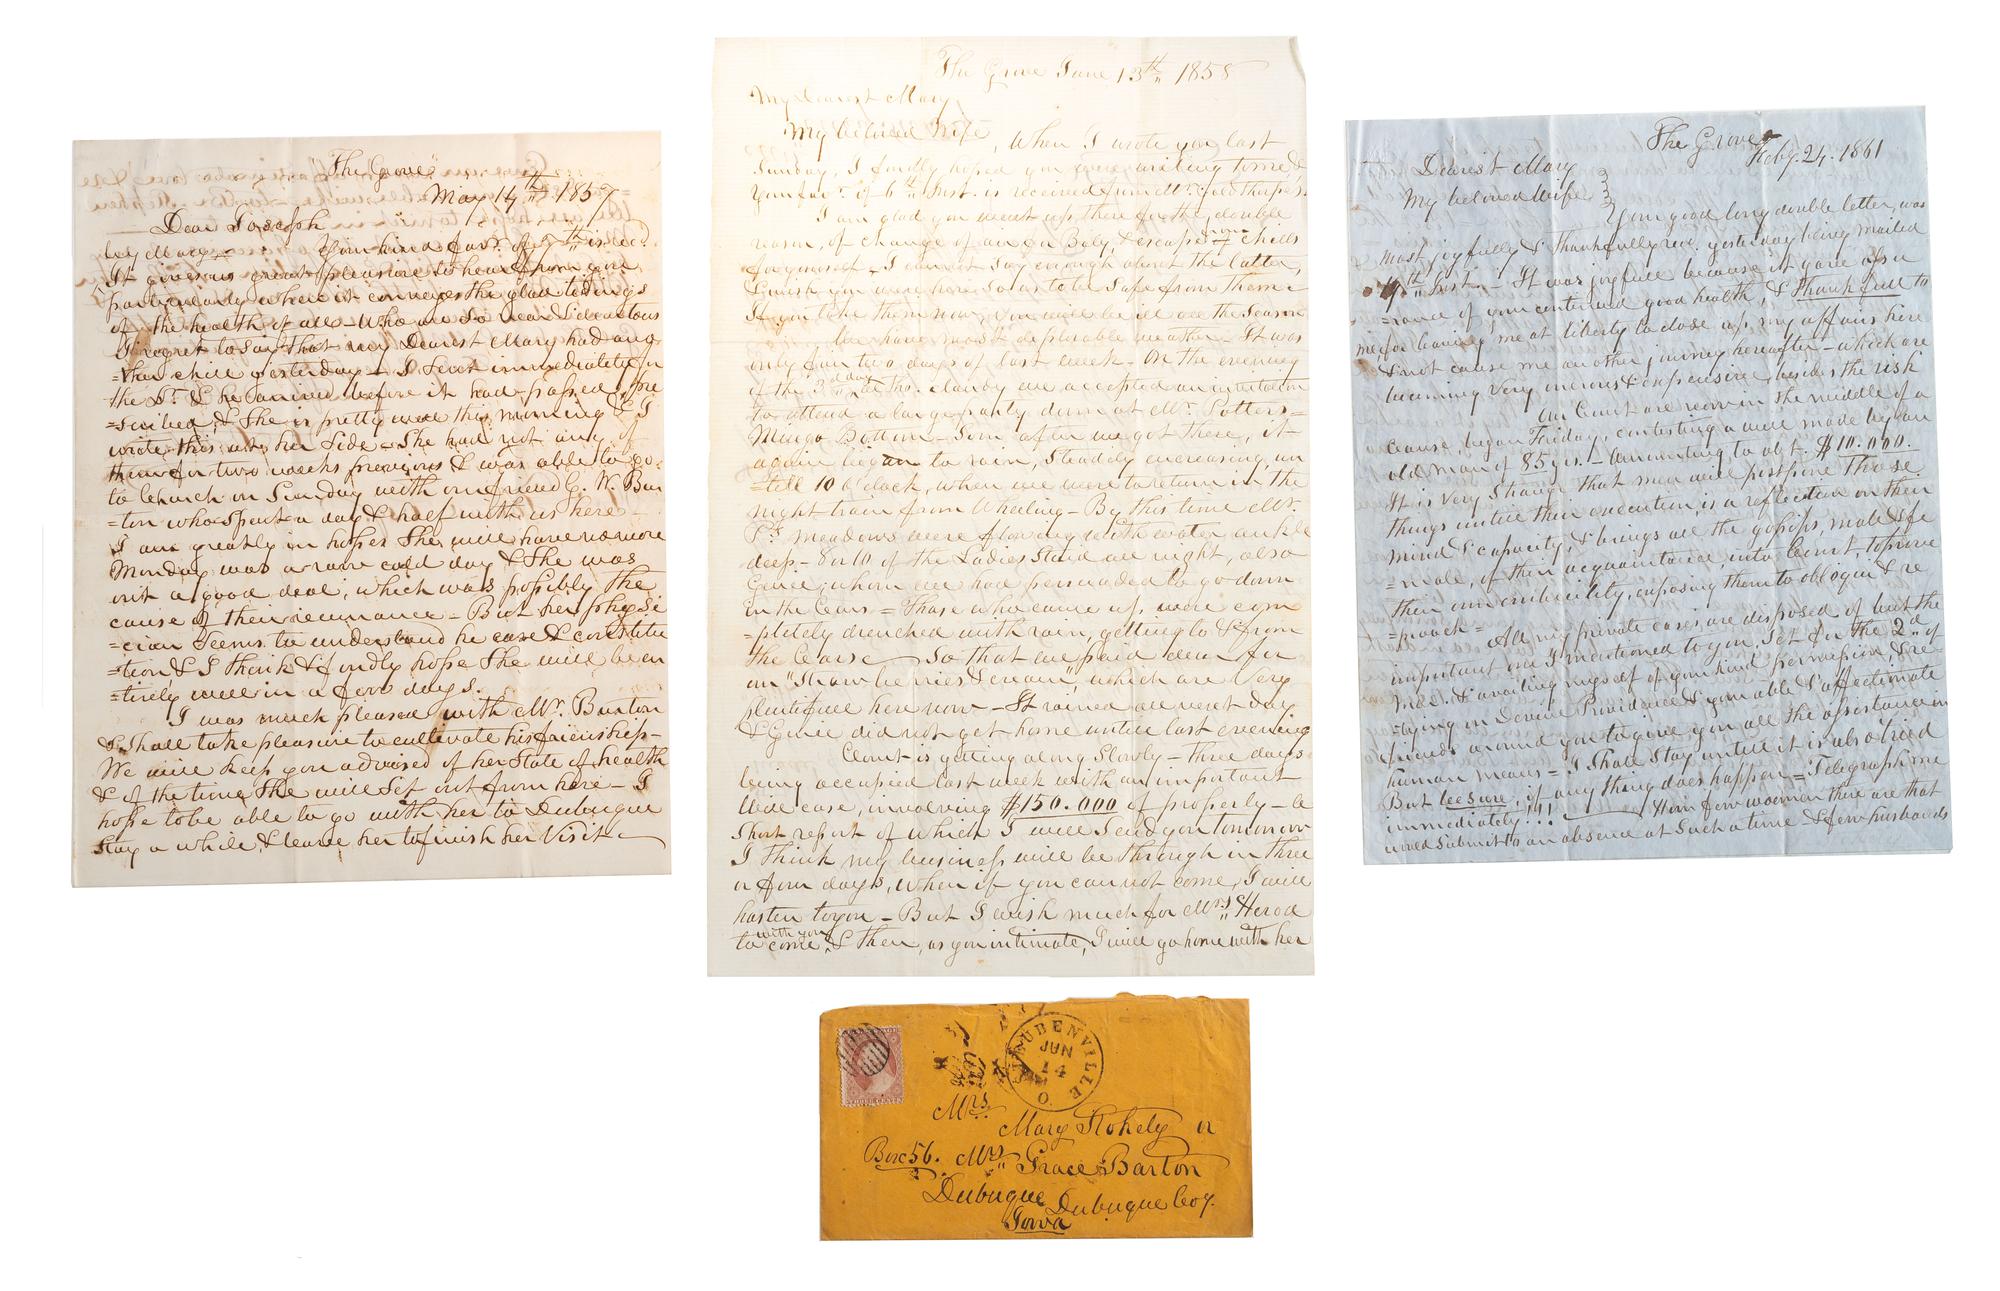 "The Grove"
May 14th 1857
Dear Joseph
by Mary — Your kind fav. of 7th is rec.d
It gives us great pleasure to hear from you
particularly when it conveys the glad tidings
of the health of all — Who are so near & dear to us
I regret to say that my Dearest Mary had ano
=ther chill yesterday — I sent immediately for
the Dr. & he arrived before it had passed, pre
=scribed, & she is pretty well this morning & I
write this at her side — She had not any of
them for two weeks previous & was able to go
to Church on Sunday with our friend G. W. Bar
=ton who spent a day & half with us here —
I am greatly in hopes she will have no more
Monday was a raw cold day & she was
out a good deal, which was possibly the
cause of their recurrance — But her physi
=cian seems to understand he case & constitu
=tion, & I think & fondly hope she will be en
=tirely well in a few days.
I was much pleased with Mr. Barton
& shall take pleasure to cultivate his friendship —
We will keep you advised of her state of health
& of the time she will set out from here — I
hope to be able to go with her to Dubuque
stay a while, & leave her to finish her visit —
The Grove June 13th 1858
My Dearest Mary
My beloved Wife, When I wrote you last
Sunday, I fondly hoped you were writing to me &
your fav. of 6th Inst. is received from Mr.
I am glad you went up there for the double
reason, of change of air for Baby, & escape from chills
for yourself — I cannot say enough about the latter,
I wish you were here so as to be safe from them —
If you take them now, you will be ill all the season
We have most deplorable weather — It was
only fair two days of last week — On the evening
of the 3d day tho. cloudy we accepted an invitation
to attend a large party down at Mr. Potters =
Mingo Bottom — Soon after we got there, it
again began to rain, steadily increasing, un
=till 10 o'clock, when we were to return in the
night train from Wheeling — By this time Mr.
P's meadows were flowing with water ankle
deep — 8 or 10 of the Ladies staid all night, also
whom we had persuaded to go down
in the Cears = Those who came up, were com
=pletely drenched with rain, getting to & from
the Cears — So that we paid dear for
our "Strawberries & cream", which are very
plentifull here now — It rained all next day
& did not get home until last evening
Court is getting along slowly — three days
being occupied last week with an important
Will case, involving $150.000 of property — a
short report of which I will send you tomorrow
I think my business will be through in three
or four days, when if you can not come, I will
hasten to you — But I wish much for Mrs. Herod
to come with you & then, as you intimate, I will go home with her
The Grove
Feby. 24. 1861
Dearest Mary
My beloved Wife
Your good long double letter, was
most joyfully & thankfully rec. yesterday being mailed
19th Inst. — It was joyfull because it gave assu
=rance of your continued good health, & thankfull to
me for leaving me at liberty to close up my affairs here
& not cause me another journey hereafter — which are
becoming very onerous & expensive, besides the risk
Our Court are now in the middle of a
cause, began Friday, contesting a will made by an
old man of 85 yrs. — amounting to abt. $10.000.
It is very strange that men will postpone those
things untill their execution, is a reflection on their
mind & capacity, & brings all the gossips, male & fe
=male, of their acquaintance, into Court, to prove
their own imbicility, exposing them to obloquy & re
=proach = All my private cases are disposed of but the
important one I mentioned to you, Set for the 2d of
Mch. & availing myself of your kind permission, & re
=lying on Devine Providence & your able & affectionate
friends around you to give you all the assistance in
human means = I shall stay untill it is also tried
But be sure, if any thing does happen = Telegraph me
immediately!!! — How few women there are that
would submit to an absence at such a time — & few husbands
STEUBENVILLE O.
JUN
14
Mrs.
Mary Stokely or
Box 56. Mrs. Grace Barton
Dubuque Dubuque Coy.
Iowa